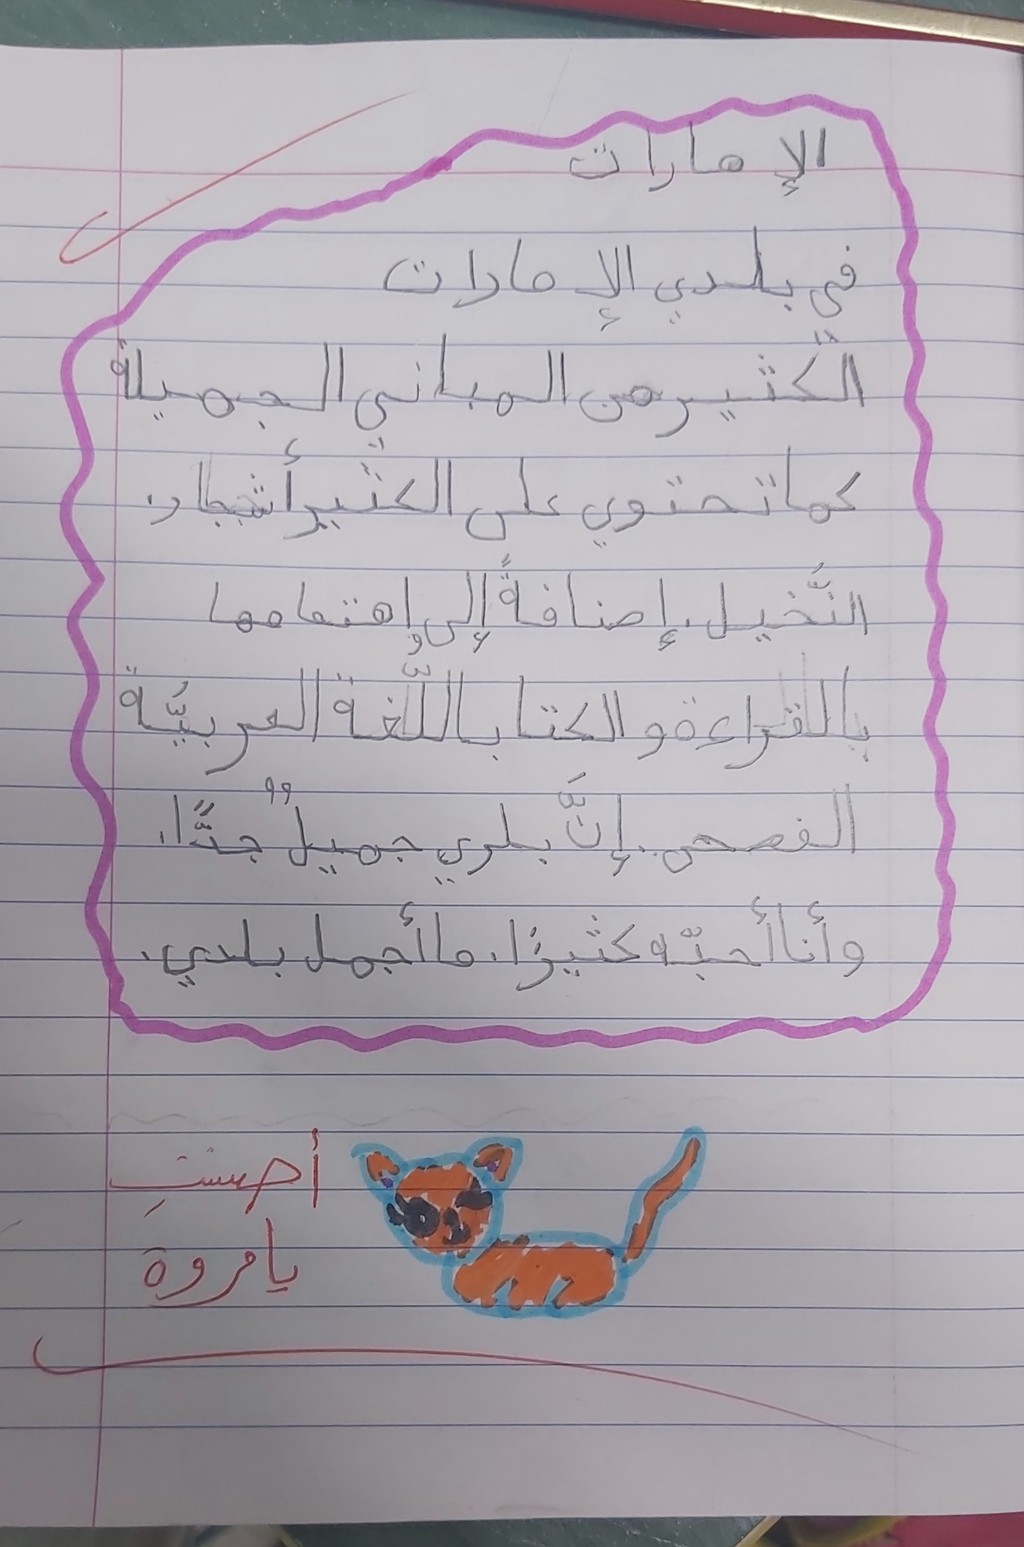 الإمارات
في بلدي الإمارات
الكثير من المباني الجميلة
كما تحتوي على الكثير أشجار،
النَّخيل. إضافةً إلى إهتمامها
بالقراءة و الكتا باللّغة العربيَّة
الفصحى. إنَّ بلدي جميلٌ جدًّا.
وأنا أحبّه كثيرًا. ما أجمل بلدي.
أحسنتِ
يا مروة